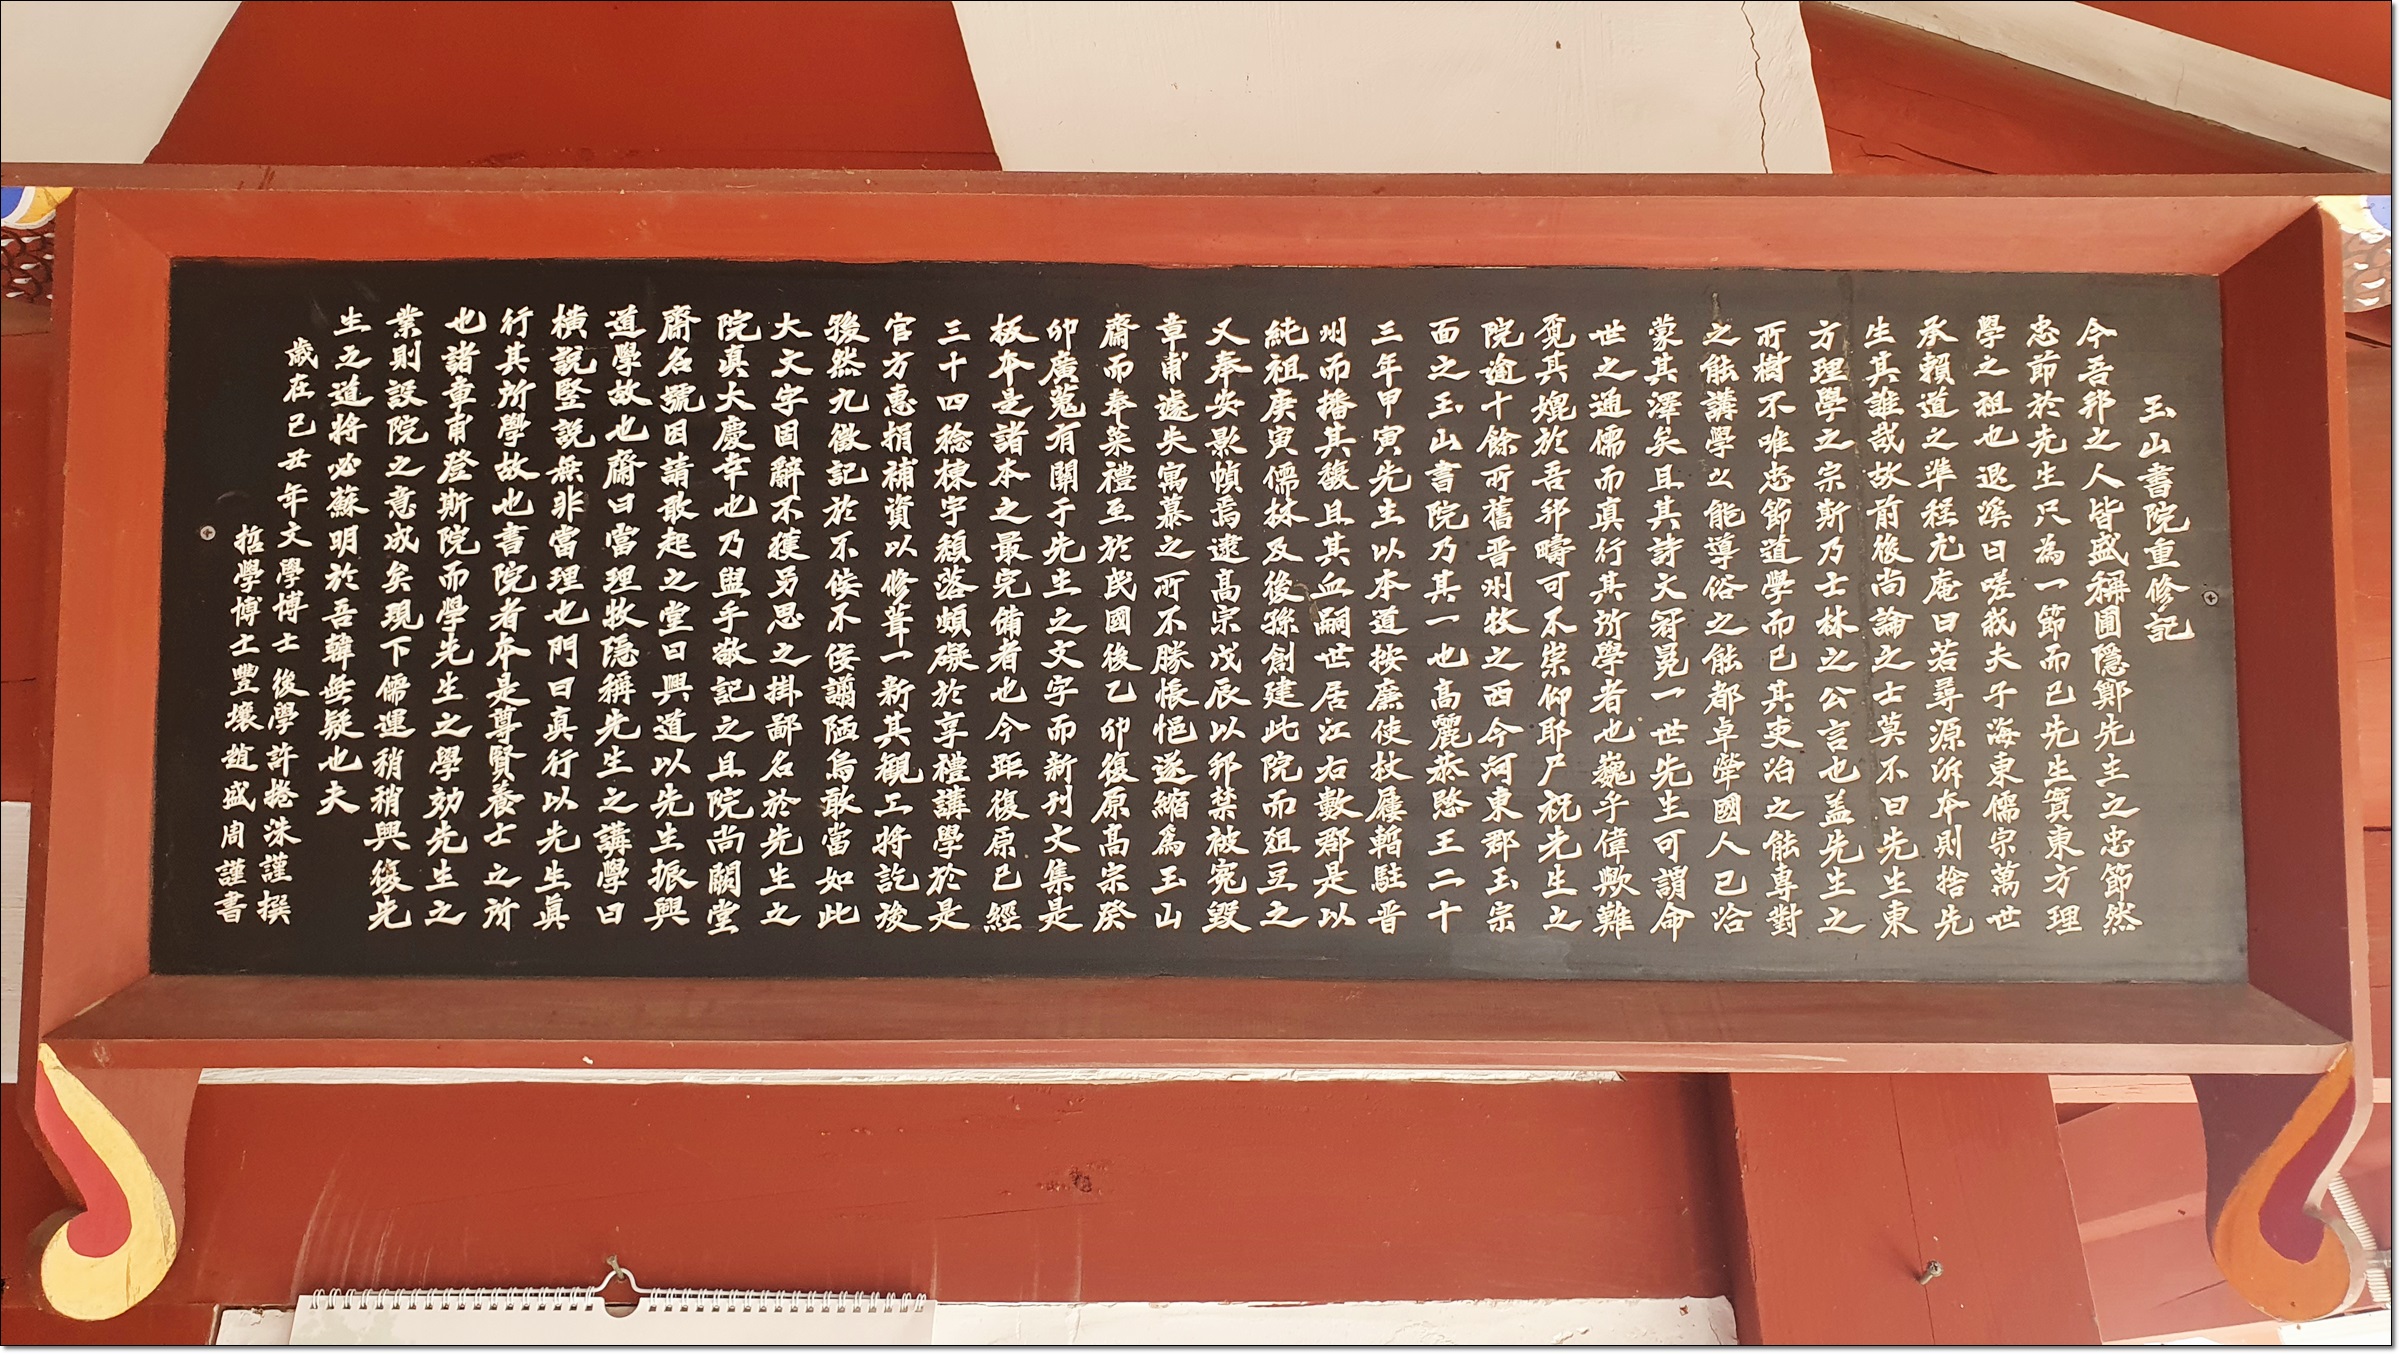 玉山書院重修記
今吾邦之人皆盛稱圃隱鄭先生之忠節然
忠節於先生只為一節而已先生實東方理
學之祖也退溪曰嗟我夫子海東儒宗萬世
承賴道之準程尤庵曰若尋源泝本則捨先
生其誰哉故前後尚論之士莫不曰先生東
方理學之宗斯乃士林之公言也盖先生之
所樹不唯忠節道學而已其吏治之能專對
之能講學之能導俗之能都卓犖國人已洽
蒙其澤矣且其詩文冠冕一世先生可謂命
世之通儒而真行其所學者也巍乎偉歟難
覓其焜於吾邦疇可不崇仰耶尸祝先生之
院逾十餘所舊晋州牧之西今河東郡玉宗
面之玉山書院乃其一也高麗恭愍王二十
三年甲寅先生以本道按廉使杖屨暫駐晋
州而播其馥且其血嗣世居江右數郡是以
純祖庚寅儒林及後孫創建此院而俎豆之
又奉安影幀焉逮高宗戊辰以邦禁被寃毀
章甫遽失寓慕之所不勝悵悒遂縮為玉山
齋而奉菜禮至於民國後乙卯復原高宗癸
卯廣蒐有關于先生之文字而新刊文集是
板本是諸本之最完備者也今距復原已經
三十四稔棟宇頹落頗礙於享禮講學於是
官方惠捐補資以修葺一新其觀工將訖後
孫然九徵記於不侫不侫謭陋烏敢當如此
大文字固辭不獲另思之掛鄙名於先生之
院真大慶幸也乃盥手敬記之且院尚闕堂
齋名號因請敢起之堂曰興道以先生振興
道學故也齋曰當理牧隱稱先生之講學曰
橫說竪說無非當理也門曰真行以先生真
行其所學故也書院者本是尊賢養士之所
也諸章甫登斯院而學先生之學効先生之
業則設院之意成矣現下儒運稍稍興復先
生之道將必蘇明於吾韓無疑也夫
歲在己丑年文學博士 後學許捲洙謹撰
哲學博士豐壤趙盛周謹書